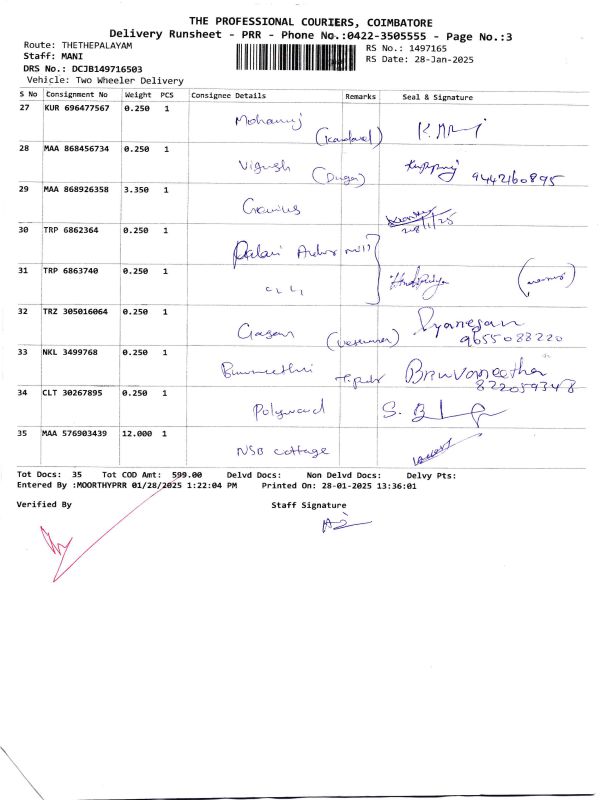 THE PROFESSIONAL COURIERS, COIMBATORE
Delivery Runsheet - PRR - Phone No.:0422-3505555 - Page No.:3
Route: THETHEPALAYAM RS No.: 1497165
Staff: MANI RS Date: 28-Jan-2025
DRS No.: DCJB149716503
Vehicle: Two Wheeler Delivery
S No Consignment No Weight PCS Consignee Details Remarks Seal & Signature
27 KUR 696477567 0.250 1 Mohanraj
28 MAA 868456734 0.250 1 Vignesh 9442160895
29 MAA 868926358 3.350 1
28/1/25
30 TRP 6862364 0.250 1 Palani Andavar mill
31 TRP 6863740 0.250 1
32 TRZ 305016064 0.250 1 Gagan Gyanesan
9655088220
33 NKL 3499768 0.250 1 Buvaneethri Bhuvaneetha
8220593478
34 CLT 30267895 0.250 1 Polyward S.
35 MAA 576903439 12.000 1 NSB cottage
Tot Docs: 35 Tot COD Amt: 599.00 Delvd Docs: Non Delvd Docs: Delvy Pts:
Entered By :MOORTHYPRR 01/28/2025 1:22:04 PM Printed On: 28-01-2025 13:36:01
Verified By Staff Signature